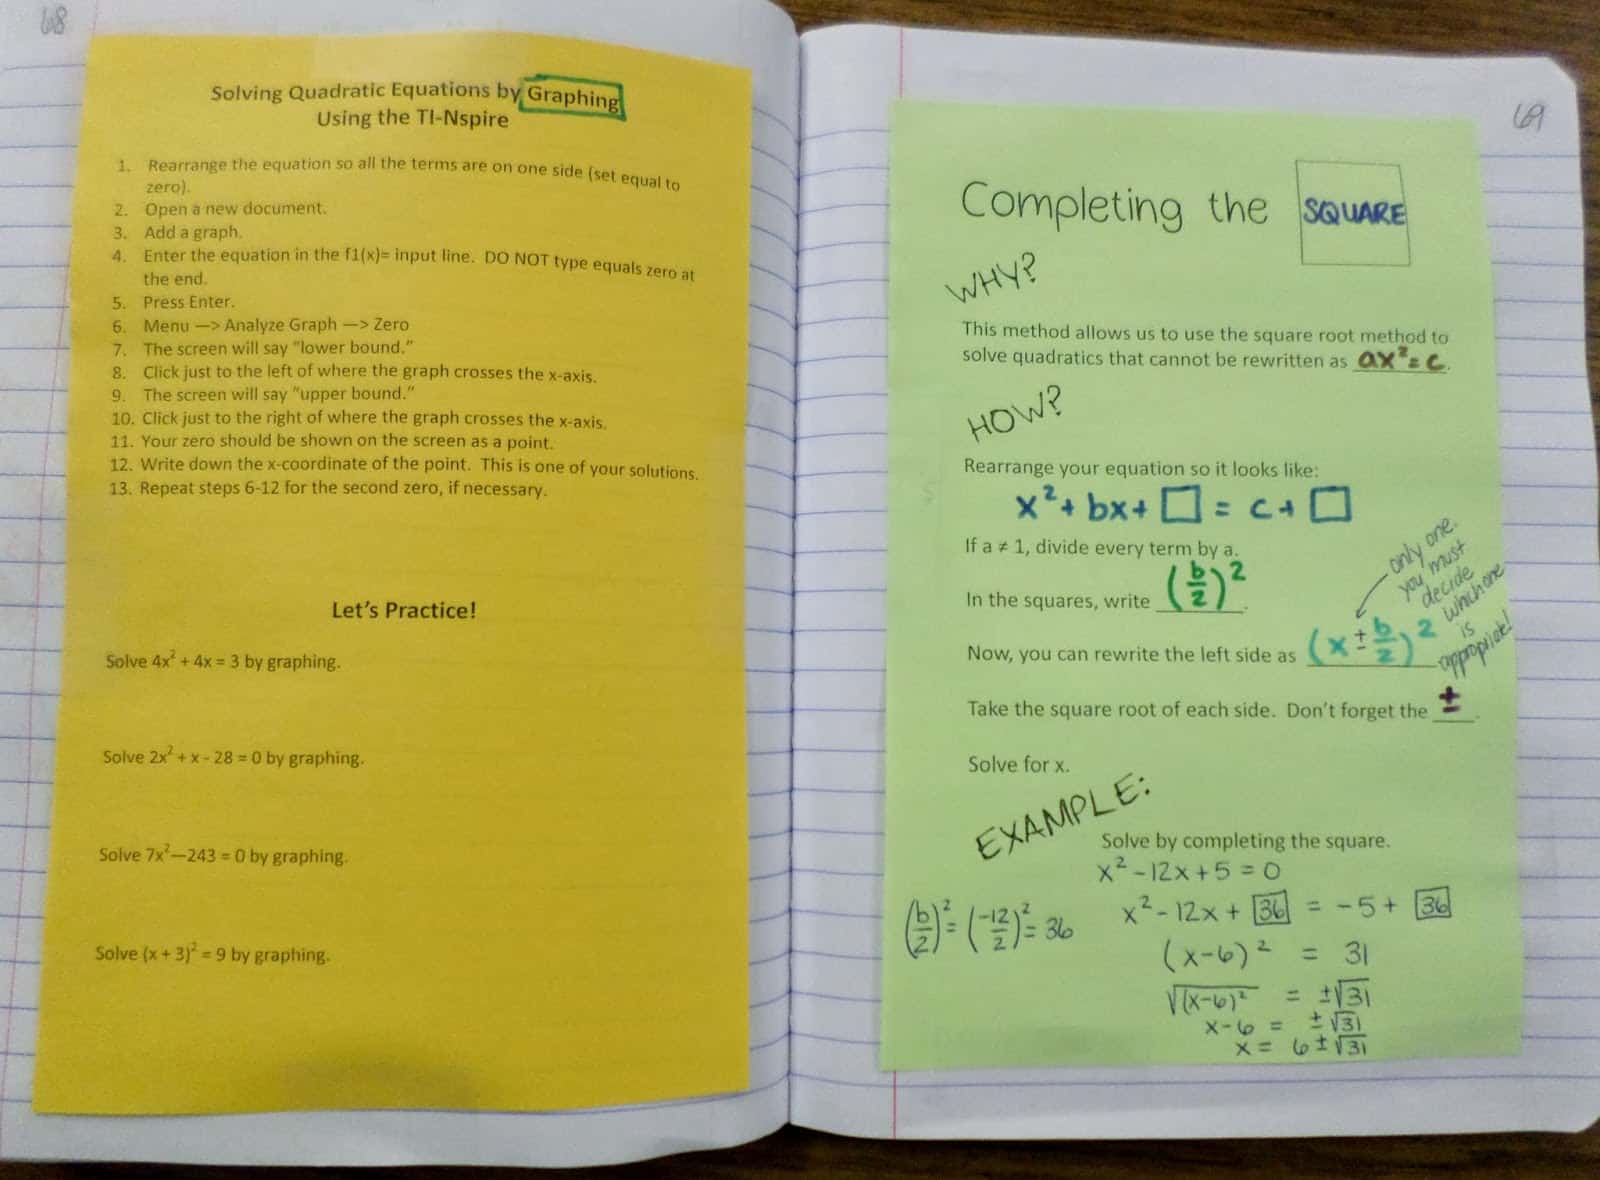 68
Solving Quadratic Equations by Graphing
Using the TI-Nspire
1. Rearrange the equation so all the terms are on one side (set equal to
zero).
2. Open a new document.
3. Add a graph.
4. Enter the equation in the f1(x)= input line. DO NOT type equals zero at
the end.
5. Press Enter.
6. Menu —> Analyze Graph —> Zero
7. The screen will say "lower bound."
8. Click just to the left of where the graph crosses the x-axis.
9. The screen will say "upper bound."
10. Click just to the right of where the graph crosses the x-axis.
11. Your zero should be shown on the screen as a point.
12. Write down the x-coordinate of the point. This is one of your solutions.
13. Repeat steps 6-12 for the second zero, if necessary.
Let's Practice!
Solve 4x² + 4x = 3 by graphing.
Solve 2x² + x - 28 = 0 by graphing.
Solve 7x²—243 = 0 by graphing.
Solve (x + 3)² = 9 by graphing.
69
Completing the SQUARE
WHY?
This method allows us to use the square root method to
solve quadratics that cannot be rewritten as ax²=c.
HOW?
Rearrange your equation so it looks like:
x² + bx + □ = c + □
If a ≠ 1, divide every term by a.
In the squares, write (b/2)².
Now, you can rewrite the left side as (x ± b/2)²
only one.
you must
decide
which one
is
appropriate!
Take the square root of each side. Don't forget the ±.
Solve for x.
EXAMPLE:
Solve by completing the square.
x² - 12x + 5 = 0
(b/2)² = (-12/2)² = 36
x² - 12x + 36 = -5 + 36
(x-6)² = 31
√(x-6)² = ±√31
x-6 = ±√31
x = 6±√31